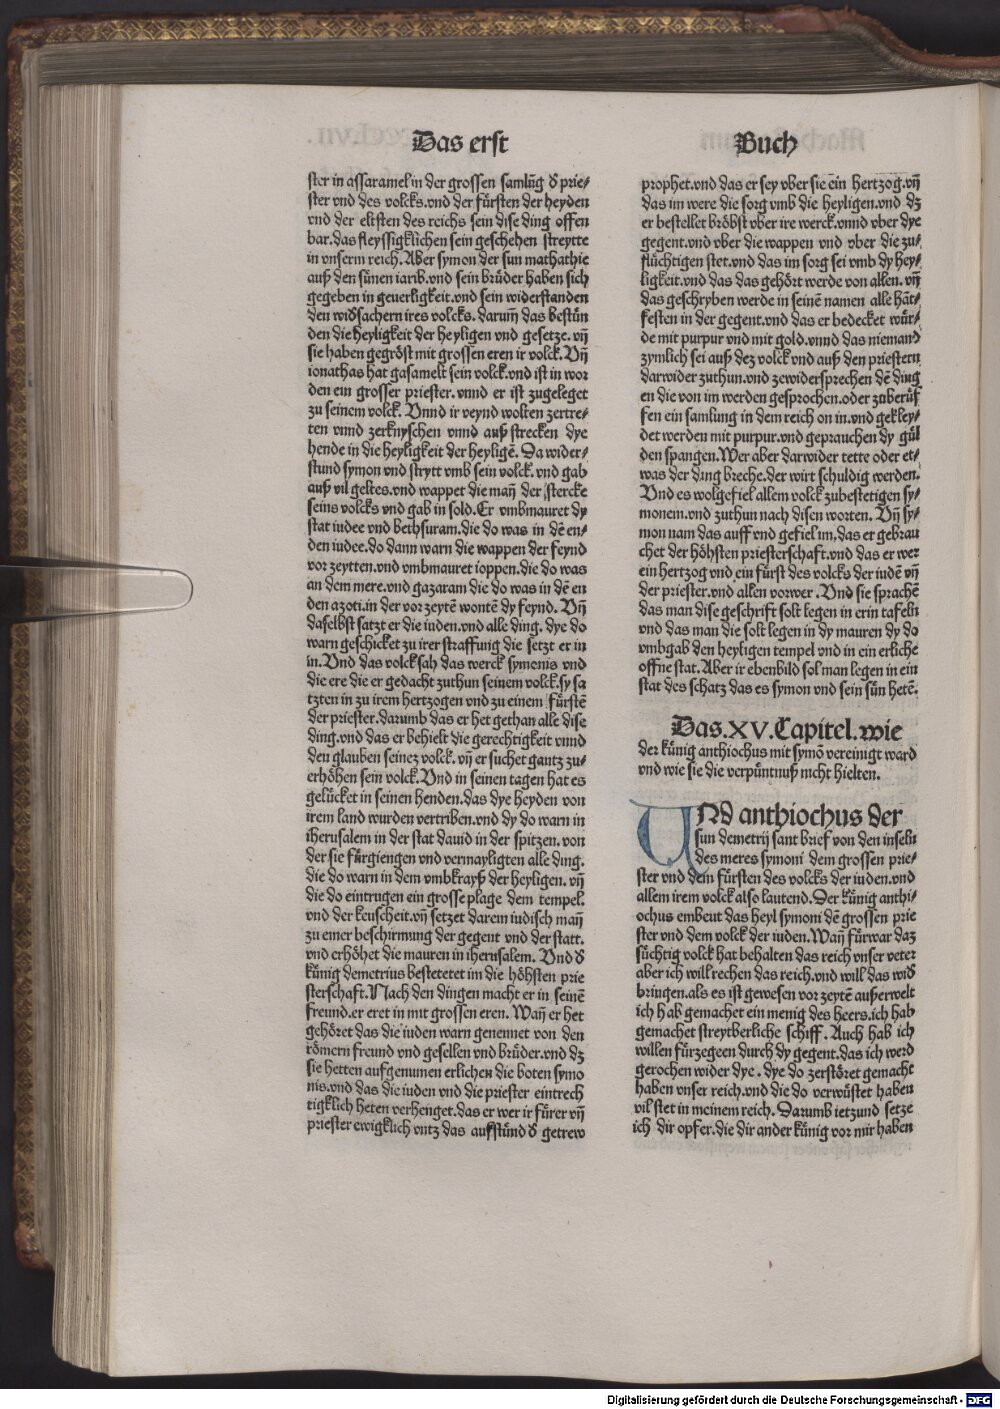 Das erst
ster in assaramel in der grossen samlūg d̄ prie⸗
ster vnd des volcks.vnd der fürsten der heyden
vnd der eltsten des reichs sein dise ding offen
bar.das fleyssigklichen sein geschehen streytte
in vnserm reich. Aber symon der sun mathathie
auß den sünen iarib.vnd sein brüder haben sich
gegeben in geuerligkeit.vnd sein widerstanden
den wid̄sachern ires volcks. darum̄ das bestün
den die heyligkeit der heyligen vnd gesetze. vn̄
sie haben gegröst mit grossen eren ir volck. Vn̄
ionathas hat gasamelt sein volck.vnd ist in wor
den ein grosser priester. vnnd er ist zugeleget
zu seinem volck. Vnnd ir veynd wolten zertre⸗
ten vnnd zerknyschen vnnd auß strecken dye
hende in die heyligkeit der heyligē. Da wider⸗
stund symon vnd strytt vmb sein volck. vnd gab
auß vil geltes.vnd wappet die man̄ der stercke
seins volcks vnd gab in sold.Er vmbmauret dy
stat iudee vnd bethsuram.die do was in dē en⸗
den iudee.do dann warn die wappen der feynd
vor zeytten.vnd vmbmauret ioppen.die do was
an dem mere.vnd gazaram die do was in dē en
den azoti.in der vor zeytē wontē dy feynd. Vn̄
daselbst satzt er die iuden.vnd alle ding. dye do
warn geschicket zu irer straffung die setzt er in
in. Vnd das volck sah das werck symonis vnd
die ere die er gedacht zuthun seinem volck.sy sa
tzten in zu irem hertzogen vnd zu einem fürstē
der priester.darumb das er het gethan alle dise
ding.vnd das er behielt die gerechtigkeit vnnd
den glauben seinez volck. vn̄ er suchet gantz zu⸗
erhöhen sein volck.Vnd in seinen tagen hat es
gelücket in seinen henden.das dye heyden von
irem land wurden vertriben.vnd dy do warn in
iherusalem in der stat dauid in der spitzen. von
der sie fürgiengen vnd vermayligten alle ding.
die do warn in dem vmbkrayß der heyligen. vn̄
die do eintrugen ein grosse plage dem tempel.
vnd der keuscheit.vn̄ setzet darein iudisch man̄
zu einer beschirmung der gegent vnd der statt.
vnd erhöhet die mauren in iherusalem. Vnd d̄
künig demetrius bestetetet im die höhsten prie
sterschaft.Nach den dingen macht er in seinē
freund.er eret in mit grossen eren. Wan̄ er het
gehöret das die iuden warn genennet von den
römern freund vnd gesellen vnd brüder.vnd dz
sie hetten aufgenumen erlichen die boten symo
nis.vnd das die iuden vnd die priester eintrech
tigklich heten verhenget.das er wer ir fürer vn̄
priester ewigklich vntz das aufstünd d̄ getrew
Buch
prophet.vnd das er sey vber sie ein hertzog.vn̄
das im were die sorg vmb die heyligen.vnd dz
er bestellet bröbst vber ire werck.vnnd vber dye
gegent.vnd vber die wappen vnd vber die zu⸗
flüchtigen stet.vnd das im sorg sei vmb dy hey⸗
ligkeit.vnd das das gehört werde von allen. vn̄
das geschryben werde in seinē namen alle hāt⸗
festen in der gegent.vnd das er bedecket wür⸗
de mit purpur vnd mit gold.vnnd das niemand
zymlich sei auß dez volck vnd auß den priestern
darwider zuthun.vnd zewidersprechen dē ding
en die von im werden gesprochen.oder zuberüf
fen ein samlung in dem reich on in.vnd gekley⸗
det werden mit purpur.vnd geprauchen dy gül
den spangen.Wer aber darwider tette oder et⸗
was der ding breche.der wirt schuldig werden.
Vnd es wolgefiel allem volck zubestetigen sy⸗
monem.vnd zuthun nach disen worten. Vn̄ sy⸗
mon nam das auff vnd gefiel im.das er gebrau
chet der höhsten priesterschaft.vnd das er wer
ein hertzog vnd ein fürst des volcks der iudē vn̄
der priester.vnd allen vorwer. Vnd sie sprachē
das man dise geschrift solt legen in erin tafeln
vnd das man die solt legen in dy mauren dy do
vmbgab den heyligen tempel vnd in ein erliche
offne stat. Aber ir ebenbild sol man legen in ein
stat des schatz das es symon vnd sein sün hetē.
Das.XV.Capitel.wie
der künig anthiochus mit symō vereinigt ward
vnd wie sie die verpüntnuß nicht hielten.
VNd anthiochus der
sun demetrij sant brief von den inseln
des meres symoni dem grossen prie⸗
ster vnd dem fürsten des volcks der iuden.vnd
allem irem volck also lautend.Der künig anthi⸗
ochus embeut das heyl symoni dē grossen prie
ster vnd dem volck der iuden.Wan̄ fürwar daz
süchtig volck hat behalten das reich vnser veter
aber ich will rechen das reich.vnd will das wid̄
bringen.als es ist gewesen vor zeytē außerwelt
ich hab gemachet ein menig des heers.ich hab
gemachet streytberliche schiff. Auch hab ich
willen fürzegeen durch dy gegent.das ich werd
gerochen wider dye. dye do zerstöret gemacht
haben vnser reich.vnd die do verwüstet haben
vil stet in meinem reich. Darumb ietzund setze
ich dir opfer.die dir ander künig vor mir haben
Digitalisierung gefördert durch die Deutsche Forschungsgemeinschaft - DFG